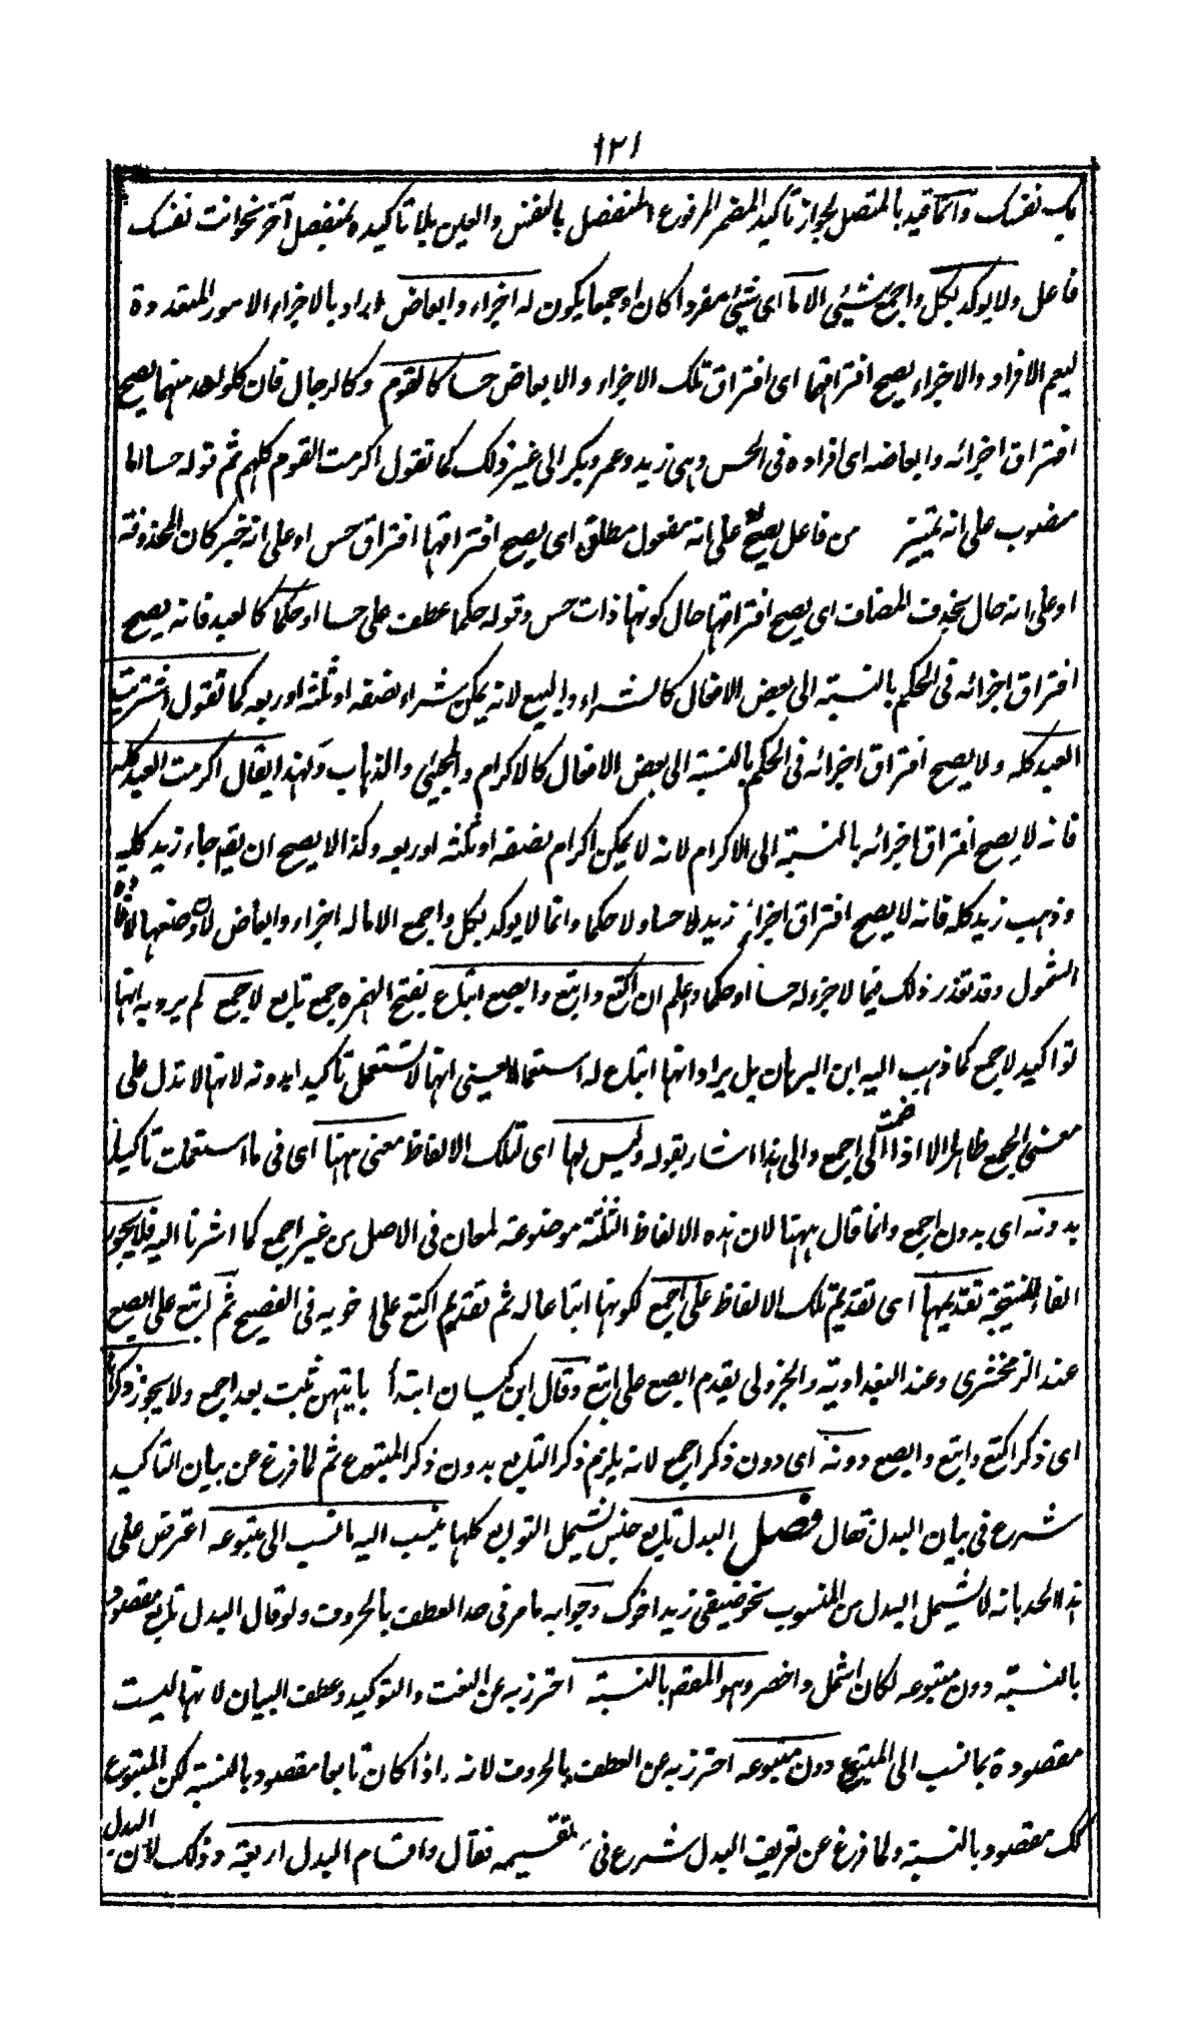 ١٢١
بك نفسك وانما قيد بالمتصل لجواز تاكيد المضمر المرفوع المنفصل بالنفس والعين بلا تاكيده بمنفصل آخر نحو انت نفسك
فاعل ولا يوكد بكل واجمع شيئ الا ما اى شيئ مفردا كان او جمعا يكون له اجزاء وابعاض اراد بالاجزاء الامور المتعددة
ليعم الافراد والاجزاء يصح افتراقها اى افتراق تلك الاجزاء والابعاض حسا كالقوم وكالرجال فان كلواحد منهما يصح
افتراق اجزائه وابعاضه اى افراده فى الحس وهى زيد وعمر وبكر الى غير ذلك كما تقول اكرمت القوم كلهم ثم قوله حسا اما
منصوب على انه تمييز من فاعل يصح او على انه مفعول مطلق اى يصح افتراقها افتراق حس او على انه خبر كان المحذوفة
او على انه حال بحذف المضاف اى يصح افتراقها حال كونها ذات حس وقوله حكما عطف على حسا او حكما كالعبد فانه يصح
افتراق اجزائه فى الحكم بالنسبة الى بعض الافعال كالشراء والبيع لانه يمكن شراء نصفه او ثلثه او ربعه كما تقول اشتريت
العبد كله ولا يصح افتراق اجزائه فى الحكم بالنسبة الى بعض الافعال كالاكرام والمجيئ والذهاب ولهذا يقال اكرمت العبد كله
فانه لا يصح افتراق اجزائه بالنسبة الى الاكرام لانه لا يمكن اكرام نصفه او ثلثه او ربعه وكذا لا يصح ان يقم جاء زيد كله
وذهب زيد كله فانه لا يصح افتراق اجزاء زيد لا حسا ولا حكما وانما لا يوكد بكل واجمع الا ما له اجزاء وابعاض لان وضعها لافادة
الشمول وقد تعذر ذلك فيما لا جزء له حسا او حكما واعلم ان اكتع وابتع وابصع اتباع بفتح الهمزه جمع تابع لاجمع لم يرد به انها
تواكيد لاجمع كما ذهب اليه ابن البرهان بل يراد انها اتباع له استعمالا يعنى انها لا تستعمل تاكيدا بدونه لانها لا تدل على
معنى الجمع ظاهرا الا اذا ضمت الى اجمع والى هذا اشار بقوله وليس لها اى لتلك الالفاظ معنى ههنا اى فى ما استعملت تاكيدا
بدونه اى بدون اجمع وانما قال ههنا لان هذه الالفاظ الثلثة موضوعة لمعان فى الاصل من غير اجمع كما اشرنا اليه فلا يجوز
الفاء للنتيجة تقديمها اى تقديم تلك الالفاظ على اجمع لكونها اتباعا له ثم تقديم اكتع على اخويه فى الفصيح ثم ابتع على ابصع
عند الزمخشرى وعند البغداوية والجزولى يقدم ابصع على ابتع وقال ابن كيسان ابتدأ بايتهن شئت بعد اجمع ولا يجوز ذكرها
اى ذكر اكتع وابتع وابصع دونه اى دون ذكر اجمع لانه يلزم ذكر التابع بدون ذكر المتبوع ثم لما فرغ عن بيان التاكيد
شرع فى بيان البدل فقال فصل البدل تابع جنس تشتمل التوابع كلها ينسب اليه ما نسب الى متبوعه اعترض على
هذا الحد بانه لا يشمل البدل من المنسوب نحو ضيفى زيد اخوك وجوابه ما مر فى حد العطف بالحروف ولو قال البدل تابع مقصود
بالنسبة دون متبوعه لكان اشمل واخصر وهو المقصم بالنسبة احترز به عن النعت والتوكيد وعطف البيان لانها ليست
مقصودة بما نسب الى المتبوع دون متبوعه احترز به عن العطف بالحروف لانه اذا كان تابعا مقصودا بالنسبة لكن المتبوع
كك مقصود بالنسبة ولما فرغ عن تعريف البدل شرع فى تقسيمه فقال واقسام البدل اربعة وذلك لان البدل